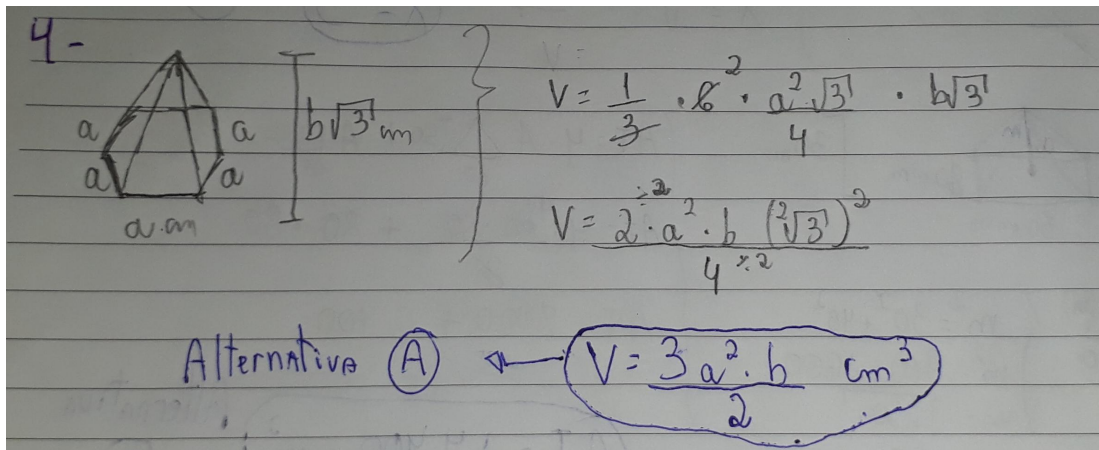 4-
a a b√3 cm
a a
a cm
V = 1/3 · 6² · a²√3/4 · b√3
V = 2÷2 · a² · b (²√3)²/4÷2
Alternativa A ← V = 3a² · b/2 cm³